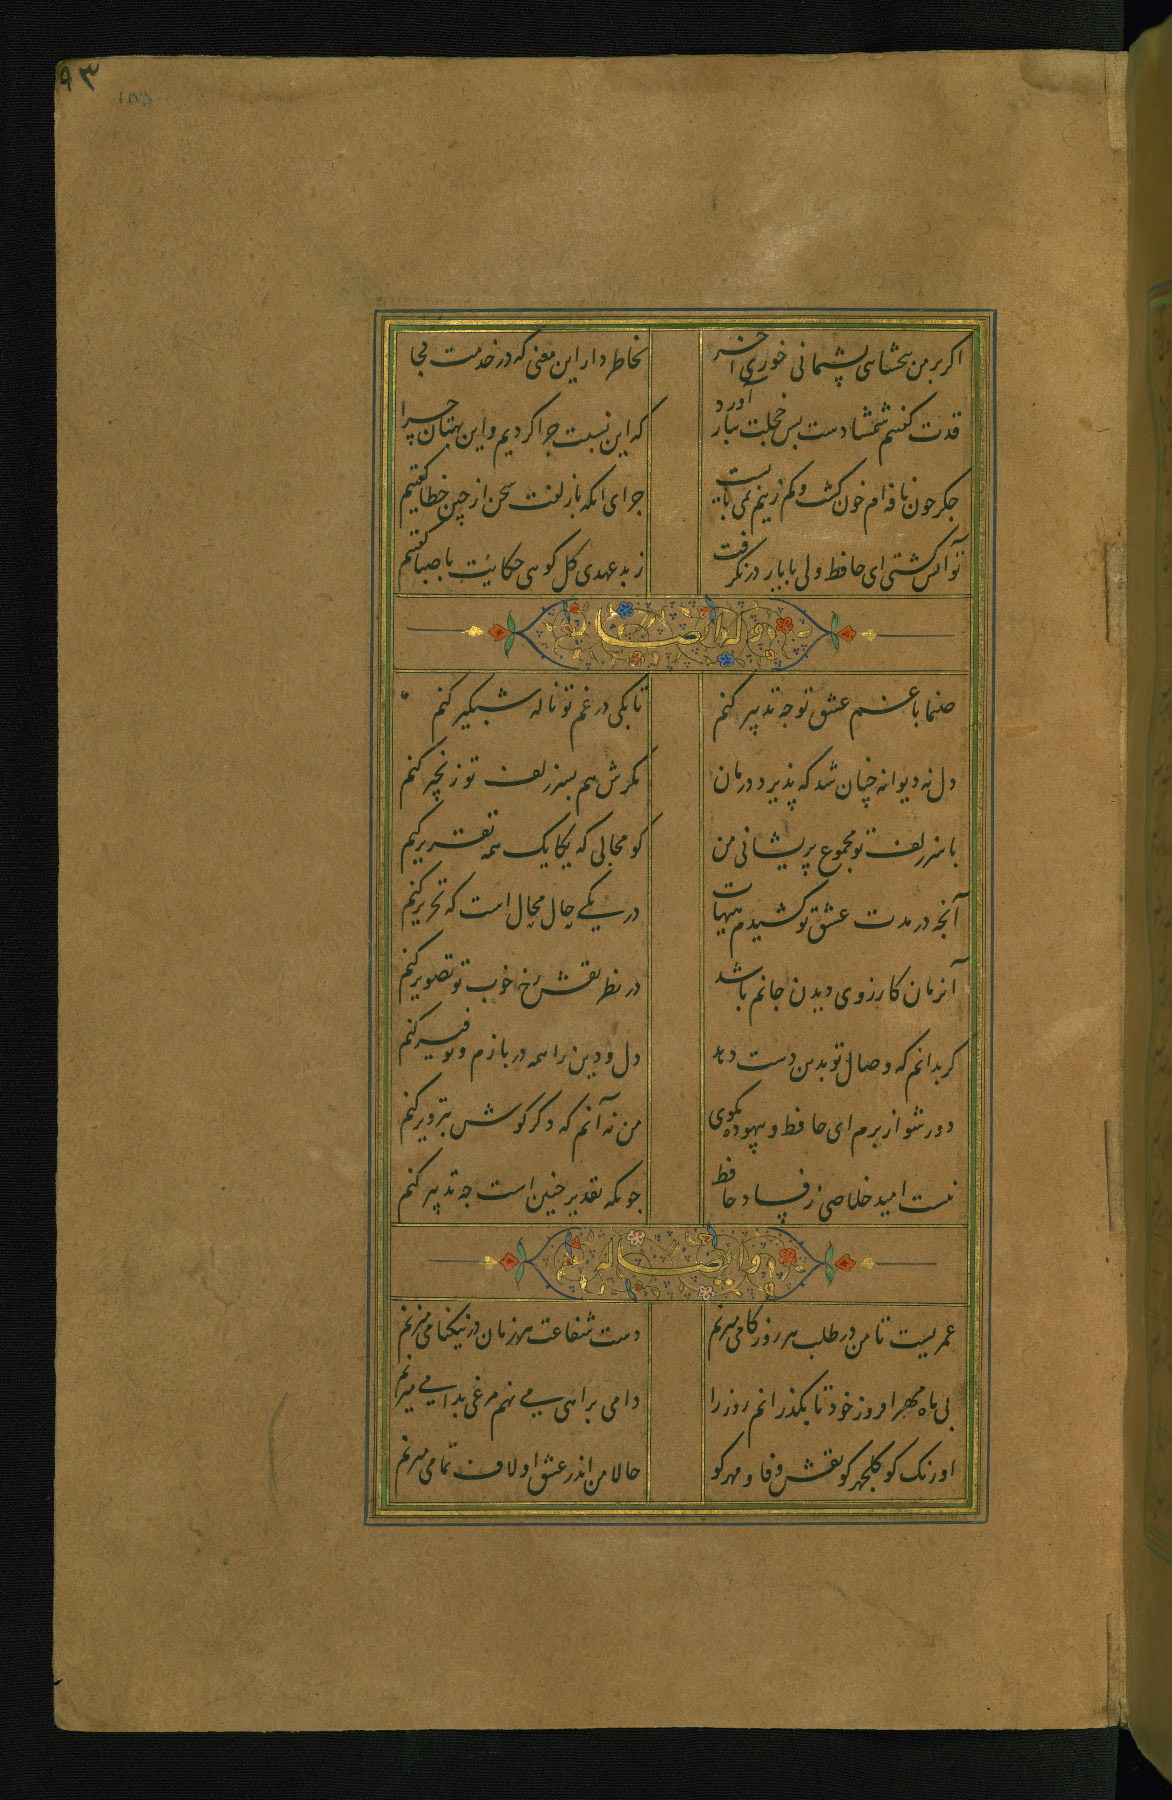 ۹۳
153
اکر بر من نبخشایی پشیمانی خوری آخر بخاطر دار این معنی که در خدمت کجا
قدت کفتم که شمشادست بس خجلت ببار آورد که این نسبت چرا کردیم و این بهتان چرا
جکر چون نافه ام خون کشت و کم زینم نمی بایست جزای انکه با زلفت سخن از چین خطا کفتیم
تو آتش کشتی ای حافظ ولی با یار در نکرفت ز بد عهدی کل کویی حکایت با صبا کفتیم
وله ایضا
صنما با غم عشق تو چه تدبیر کنم تا بکی در غم تو ناله شبکیر کنم
دل دیوانه چنان شد که پذیرد درمان مکرش هم بسر زلف تو زنجیر کنم
با سر زلف تو مجموع پریشانی من کو مجالی که یکایک همه تقریر کنم
آنچه در مدت عشق تو کشیدم هیهات در یکی حال محال است که تحریر کنم
آنزمان کارزوی دیدن جانم باشد در نظر نقش رخ خوب تو تصویر کنم
کر بدانم که وصال تو بدین دست دهد دل و دین را همه در بازم و توفیر کنم
دور شو از برم ای حافظ و بیهوده مکوی من نه آنم که دکر کوش بتزویر کنم
نیست امید خلاصی ز فساد حافظ چونکه تقدیر چنین است چه تدبیر کنم
وله ایضا
عمریست تا من در طلب هر روز کامی میزنم دست شفاعت هر زمان در نیکنامی میزنم
بی ماه مهر افروز خود تا بکذرانم روز را دامی براهی می نهم مرغی بدامی میزنم
اورنک کو کلچهر کو نقش وفا و مهر کو حالا من اندر عشق او لاف تمامی میزنم